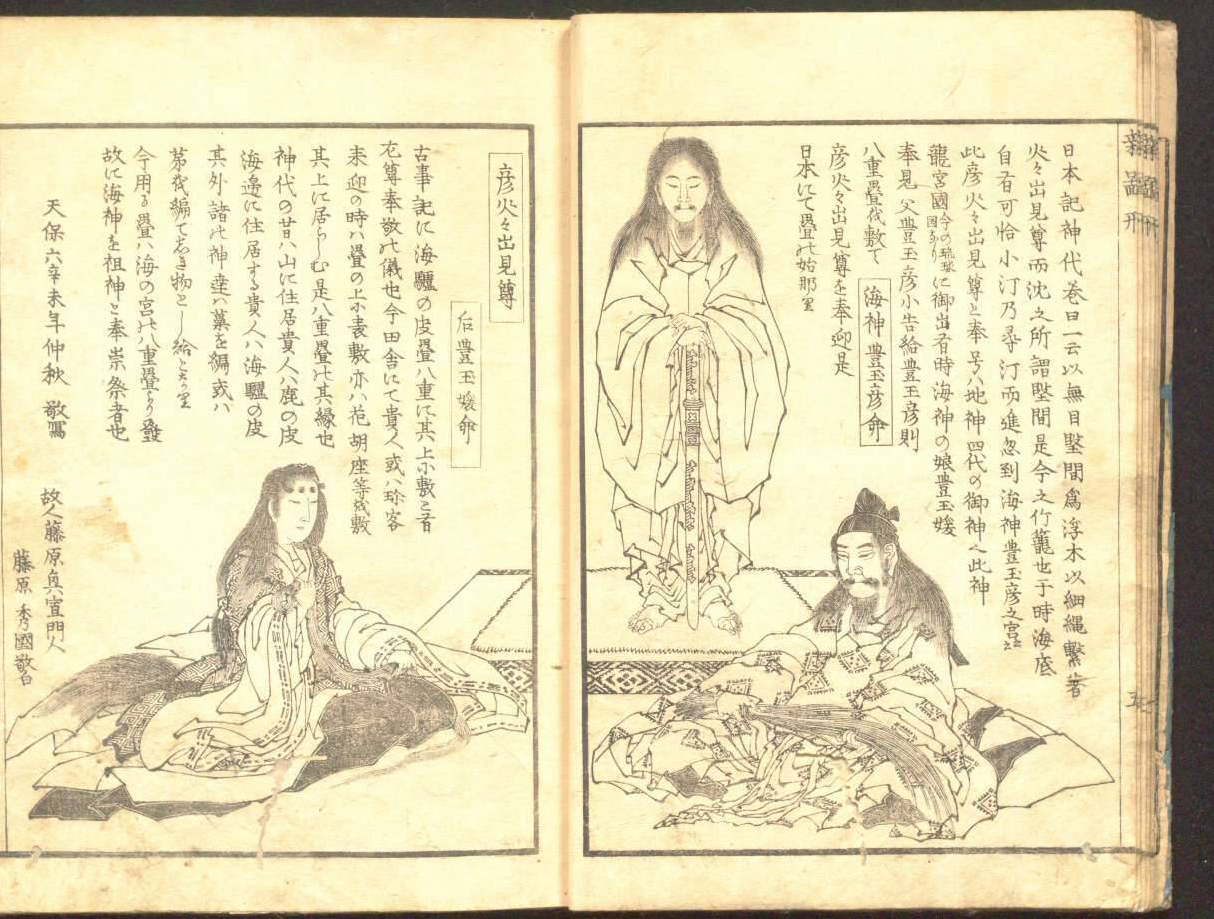 日本記神代巻曰一云以無目堅間為浮木以細縄繋著
火々出見尊而沈之所謂堅間是今之竹籠也于時海底
自有可怜小汀乃尋汀而進忽到海神豊玉彦之宮云云
此彦火々出見尊と奉号ハ地神四代の御神也此神
龍宮國今の琉球國なりに御出有時海神の娘豊玉媛
奉見父豊玉彦小告給豊玉彦則
海神豊玉彦命
八重畳を敷て
彦火々出見尊を奉迎是
日本にて畳の始那り
彦火々出見尊
后豊玉媛命
古事記に海驢の皮畳八重に其上小敷と有
尊奉敬の儀也今田舎にて貴人或ハ珍客
来迎の時ハ畳の上に表敷亦ハ花胡座等を敷
其上に居らしむ是八重畳の其縁也
神代の昔ハ山に住居貴人ハ鹿の皮
海邊に住居する貴人ハ海驢の皮
其外諸の神達ハ藁を編或ハ
菰を編てしき物とし給となり
今用る畳ハ海の宮の八重畳より發
故に海神を祖神と奉崇祭者也
天保六辛未年仲秋 敬寫
故人藤原真宣門人
藤原秀國敬白